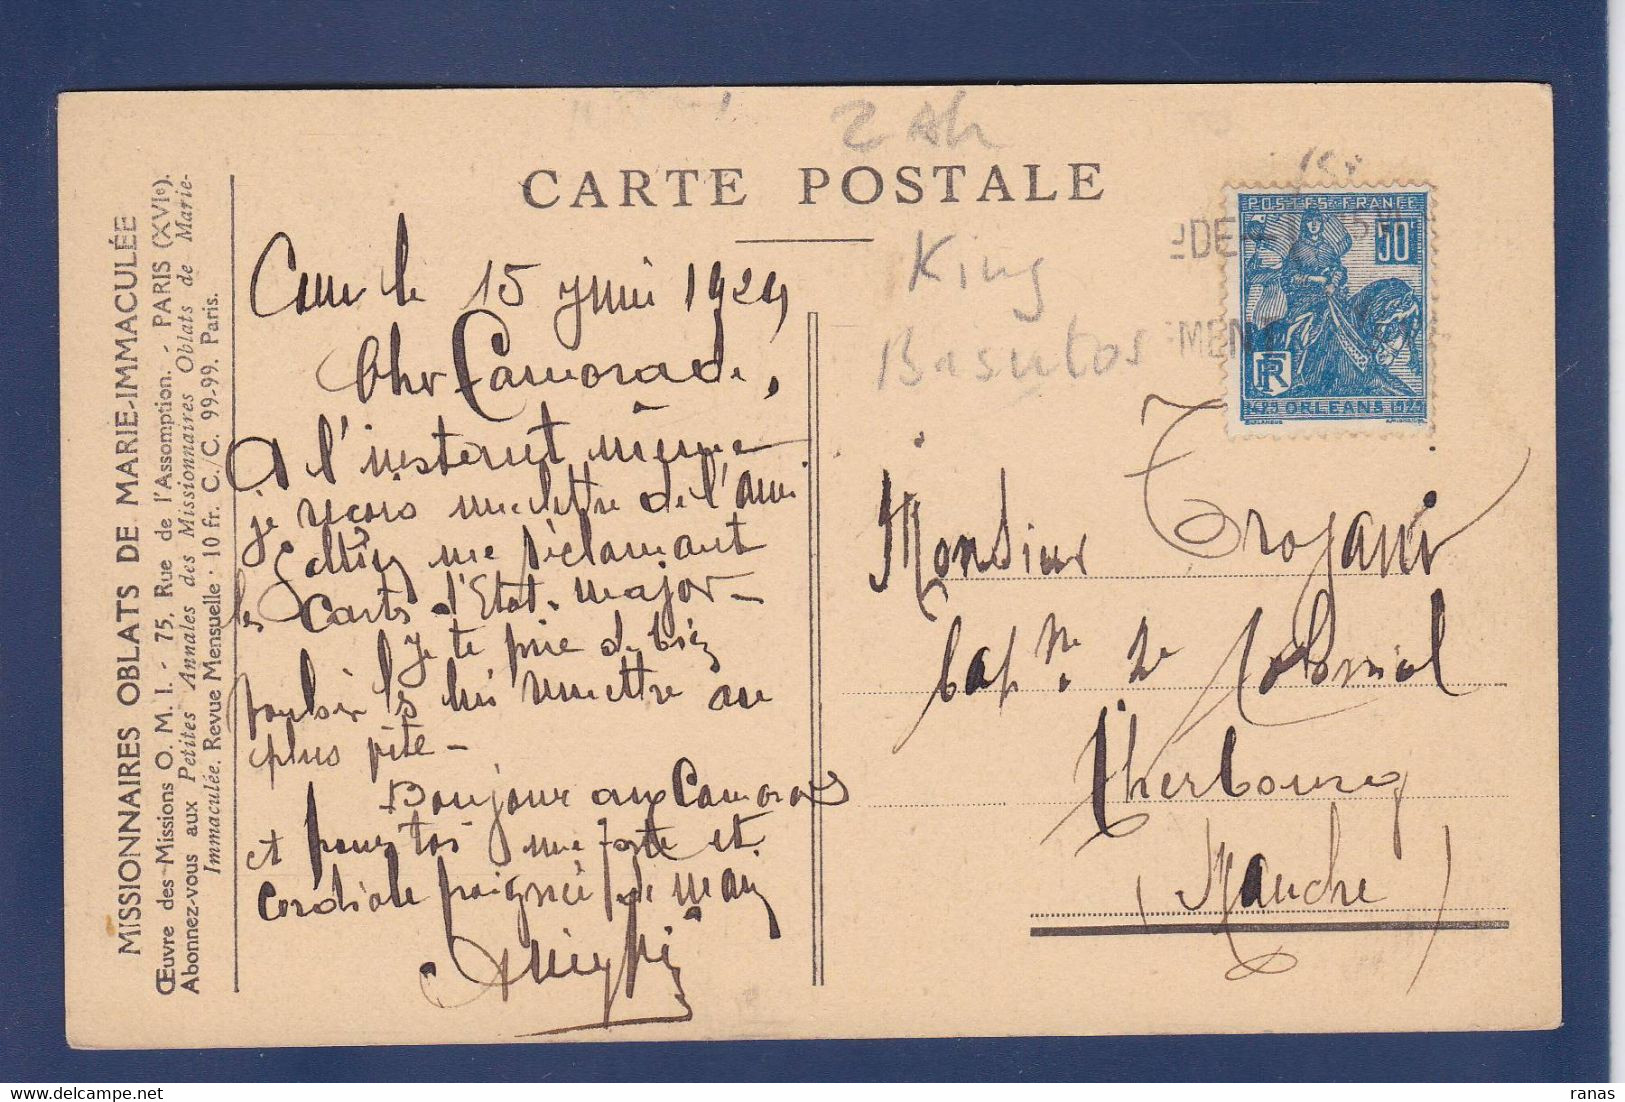 MISSIONNAIRES OBLATS DE MARIE-IMMACULÉE
Œuvre des Missions O. M. I. - 75, Rue de l'Assomption. - PARIS (XVIe).
Abonnez-vous aux Petites Annales des Missionnaires Oblats de Marie-
Immaculée. Revue Mensuelle · 10 fr. C./C. 99-99. Paris.
CARTE POSTALE
le 15 juin 1929
Cher Camarade,
A l'instant même
je reçois une lettre de l'ami
me réclamant
les Carts d'Etat-major—
Je te prie de bien
les lui remettre au
plus vite—
Bonjour aux Camarades
et pour toi une forte et
Cordiale poignée de main
King
Basutos
POSTES FRANCE
50c
RF
ORLEANS
Monsieur
Capne. de Colonial
Cherbourg
(Manche)
ranas